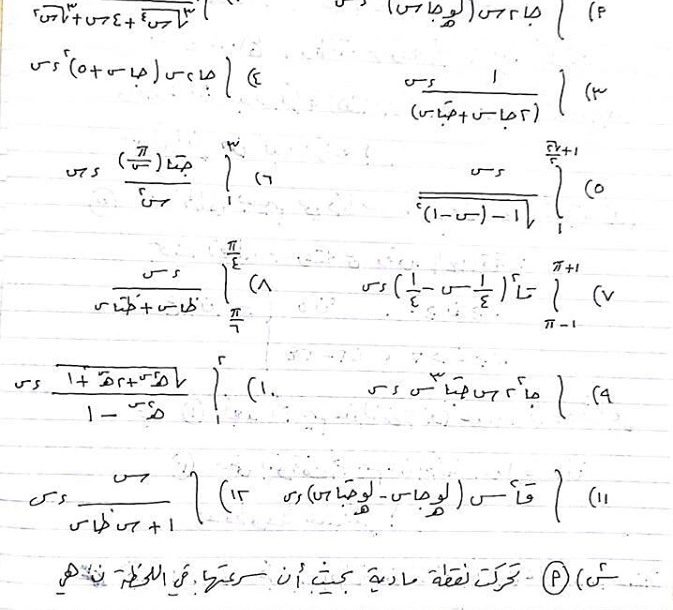 ٢) ∫ جا٢س (لو_هـ جاس) ءس
٣) ∫ ١ / (٢جاس+جتاس) ءس ٤) ∫ جا٢س (جاس+٥)^٢ ءس
٥) ∫ ءس / √(١-(س-١)^٢) ٦) ∫_١^٣ جتا(π/س) / س^٢ ءس
٧) ∫_(π-١)^(π+١) قا^٢(١/٤ س - ١/٤) ءس ٨) ∫_(π/٦)^(π/٤) ءس / (ظاس+ظتاس)
٩) ∫ جا^٢ ٢س جتا^٣ س ءس ١٠) ∫_١^٢ √(هـ^٢س+٢هـ^س+١) / (هـ^٢س - ١) ءس
١١) ∫ قا^٢س (لو_هـ جاس - لو_هـ جتاس) ءس ١٢) ∫ س / (١+س ظاس) ءس
س) (٢) - تحركت نقطة مادية بحيث أن سرعتها في اللحظة ن هي